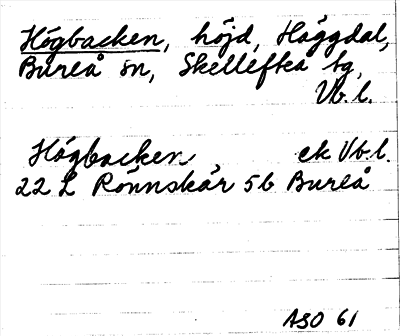 Högbacken, höjd, Häggdal,
Bureå sn, Skellefteå tg,
Vb. l.
Högbacken, ek Vb. l.
22 L Rönnskär 5b Bureå
ASO 61